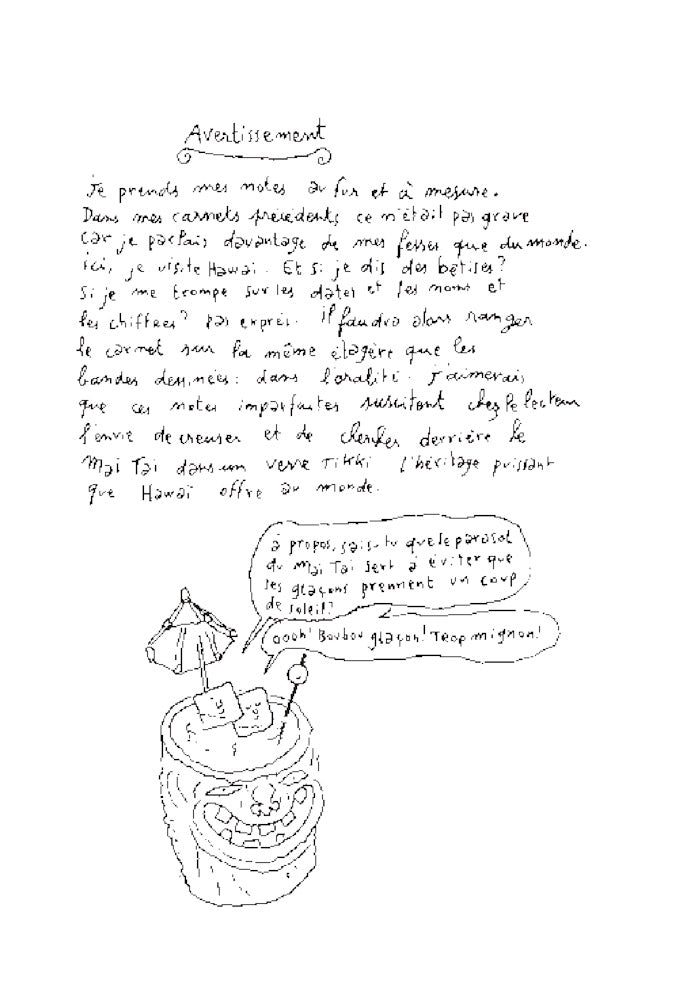 Avertissement
Je prends mes notes au fur et à mesure.
Dans mes carnets précédents ce n'était pas grave
car je parlais davantage de mes fesses que du monde.
ici, je visite Hawaï. Et si je dis des bêtises?
Si je me trompe sur les dates et les noms et
les chiffres? pas exprès. il faudra alors ranger
le carnet sur la même étagère que les
bandes dessinées: dans l'oralité. j'aimerais
que ces notes imparfaites suscitent chez le lecteur
l'envie de creuser et de chercher derrière le
Maï Taï dans un verre Tikki l'héritage puissant
que Hawaï offre au monde.
à propos, sais-tu que le parasol
du Maï Taï sert à éviter que
les glaçons prennent un coup
de soleil?
oooh! Boubou glaçon! Trop mignon!